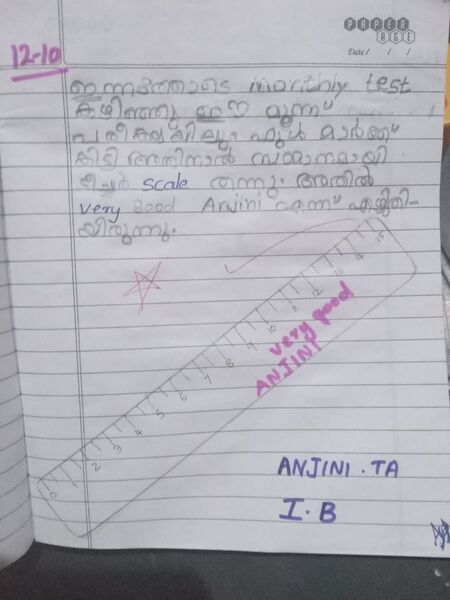 PAPER AGE
Date / / /
12-10
ഇന്നത്തോടെ monthly test
കഴിഞ്ഞു ഈ മൂന്ന്
പരീക്ഷകളിലും ഫുൾ മാർക്ക്
കിട്ടി അതിനാൽ സമ്മാനമായി
ടീച്ചർ scale തന്നു. അതിൽ
very good Anjini എന്ന് എഴുതി-
യിരുന്നു.
0 2 3 4 5 6 7 8 9 10 11 12 13 14 15
very good
ANJINI
ANJINI . TA
I . B